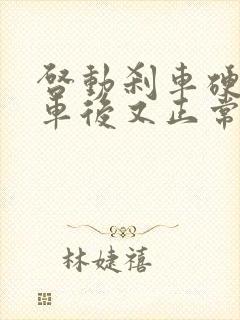 啓動刹車硬
車後又正常
林婕禧